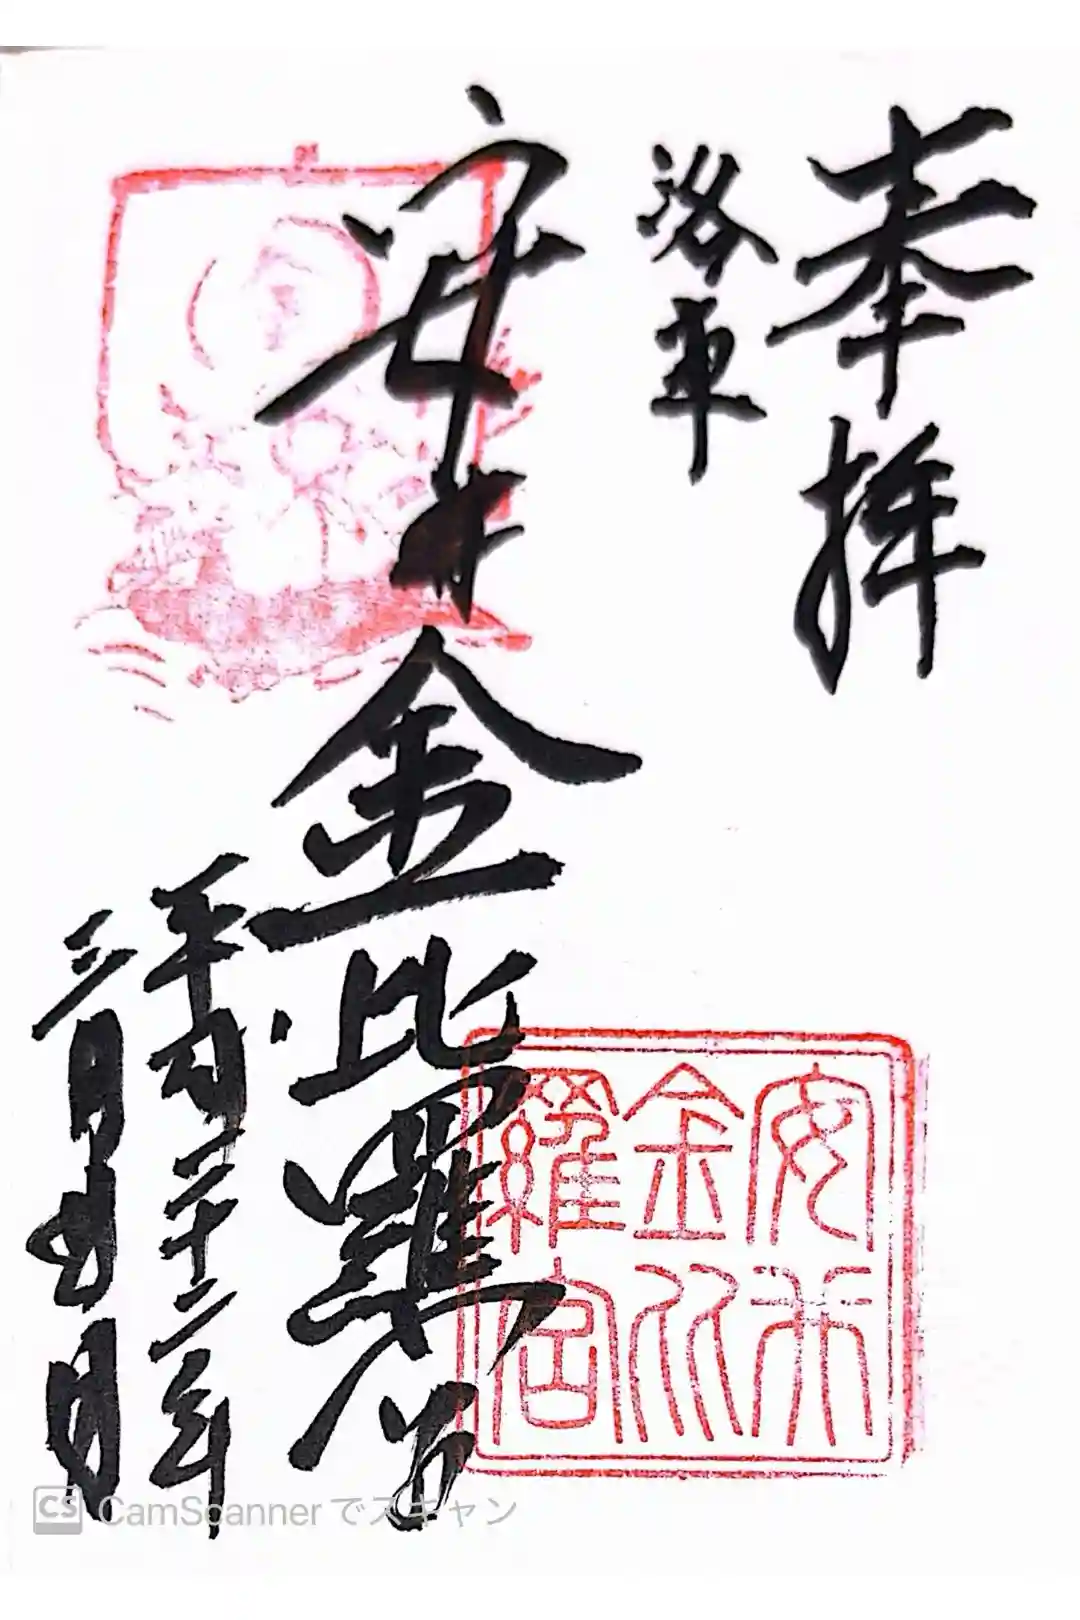 奉拝
洛東
安井金比羅宮
平成二十二年
三月 日
安井
金比
羅宮
CS CamScannerでスキャン